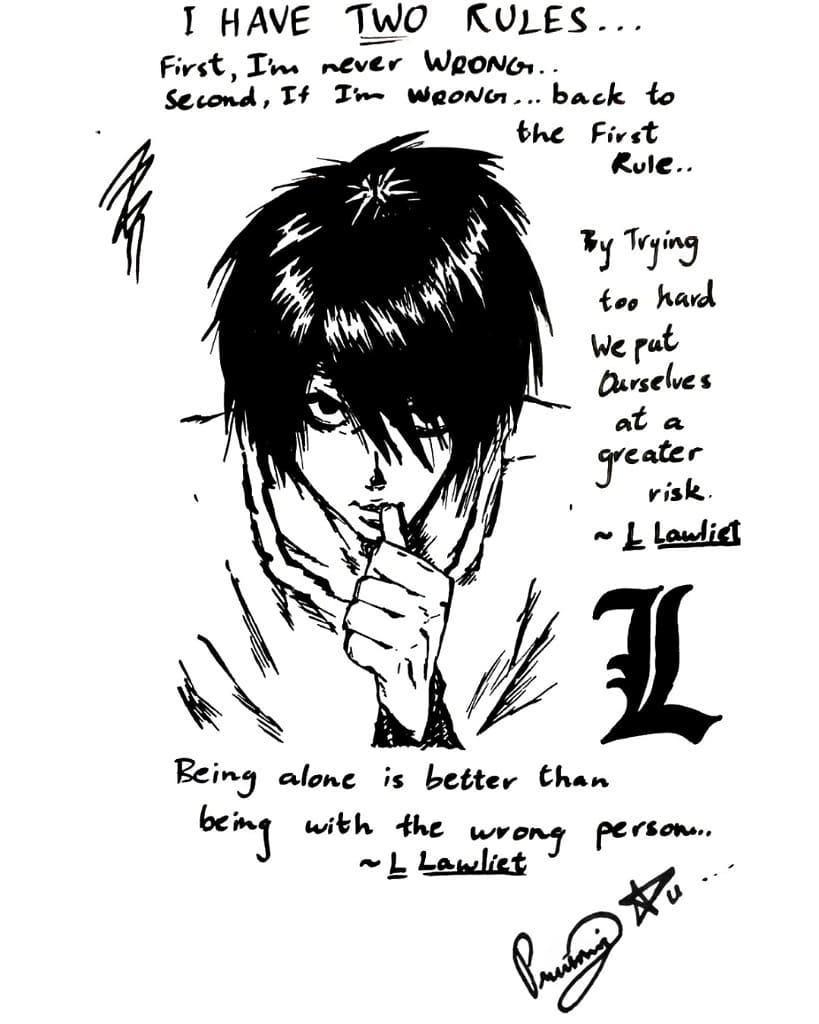 I HAVE TWO RULES...
First, I'm never WRONG..
Second, If I'm WRONG... back to
the First
Rule..
By Trying
too hard
We put
Ourselves
at a
greater
risk.
~ L Lawliet
L
Being alone is better than
being with the wrong person...
~ L Lawliet